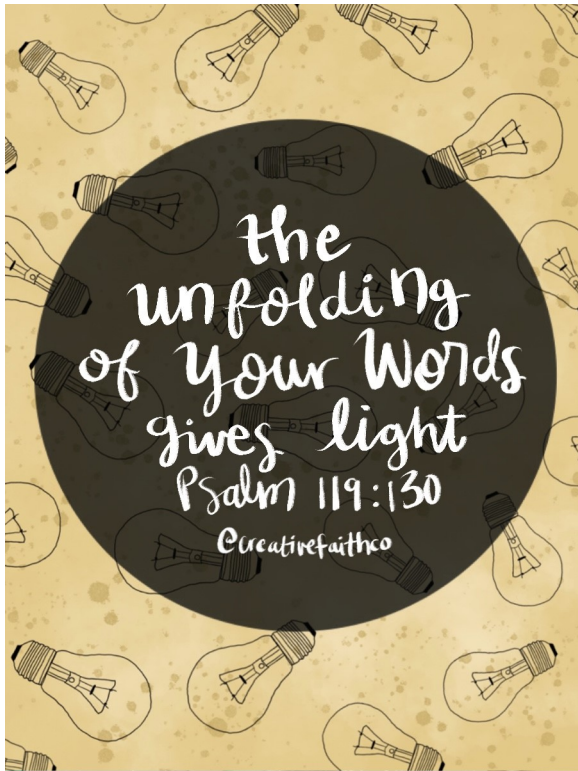 the
unfolding
of Your Words
gives light
Psalm 119:130
@creativefaithco